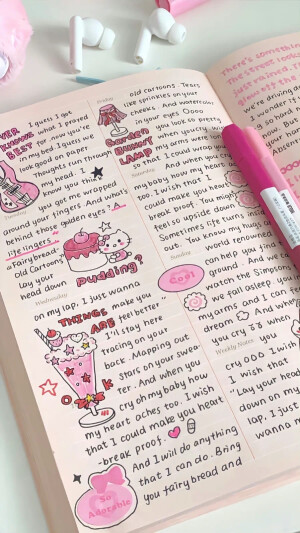 I guess I got
EVER what I proved
KNOWS now you're
BEST in my bed. I guess we
look good on paper.
Thoughts run through
my head. I
know you think
you got me wrapped
Tuesday
around your fingers. And what's
behind those golden eyes?
"Fairy bread
Old Cartoons
lay your
head down
Pudding?
Wednesday
on my lap. I just wanna
THINGS make you
ARE feel better"
I'll stay here
tracing on your
back. Mapping out
stars on your swea
ter. And when you
cry oh my baby how
my heart aches too. I wish
that I could make you heart
-break proof.
And I will do anything
So
Adorable
that I can do. Bring
you fairy bread and
Friday
old cartoons. Tears
like sprinkles on your
cheeks. And watercolor
in your eyes. Oooo
Garden
BUNNY
LAMP
you look so pretty
when you cry. Wish
my arms were long
so that I could wrap you
And when you cry
my baby how my
too. I wish that I
Saturday
could make you heart
break proof. You may
feel so upside down
Sometimes life turns inside
out. You know my hugs are
world renowned
Sunday
Cool
can help you find
ground. And we can
watch the Simpsons
we fall asleep. you
my arms and I can
dream. And when
you cry
Weekly Notes
cry ooo I wish
I wish that
"Lay your head
down on my
lap, I just
wanna m
There's something
the street looks
just rained. I
glow off the
we're driving
I wonder if